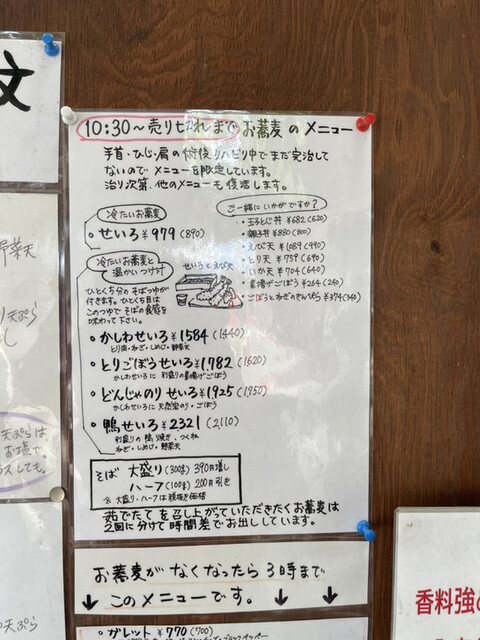 文
10:30～売り切れまで お蕎麦のメニュー
手首・ひじ・肩の術後リハビリ中でまだ完治して
ないのでメニューを限定しています。
治り次第、他のメニューも復活します。
冷たいお蕎麦
・せいろ ¥979 (890)
ご一緒にいかがですか？
・玉子とじ丼 ¥682 (620)
・親子丼 ¥880 (800)
・えび天 ¥1089 (990)
・とり天 ¥759 (690)
・いか天 ¥704 (640)
・素揚げごぼう ¥264 (240)
・ごぼうとねぎのきんぴら ¥374 (340)
冷たいお蕎麦と
温かいつけ汁
ひとくち分のそばつゆが
付きます。ひとくち目は
このつゆでそばの食感を
味わって下さい。
せいろとえび天
・かしわせいろ ¥1584 (1440)
とり肉・ねぎ・しめじ・野菜天
・とりごぼうせいろ ¥1,782 (1620)
かしわせいろに 別盛りの素揚げごぼう
・どんじゃのり せいろ ¥1,925 (1750)
かしわせいろに 天然岩のり・ごぼう
・鴨せいろ ¥2321 (2110)
別盛りの鴨焼き、つくね
ねぎ・しめじ・野菜天
そば 大盛り (300g) 390円増し
ハーフ (100g) 200円引き
※ 大盛り・ハーフは税抜き価格
茹でたてを召し上がっていただきたくお蕎麦は
2回に分けて時間差でお出ししています。
お蕎麦がなくなったら 3時まで
↓ このメニューです。 ↓ ↓
・ガレット ¥770 (700)
野菜天
天ぷら
天ぷらは
お塩で
香料強